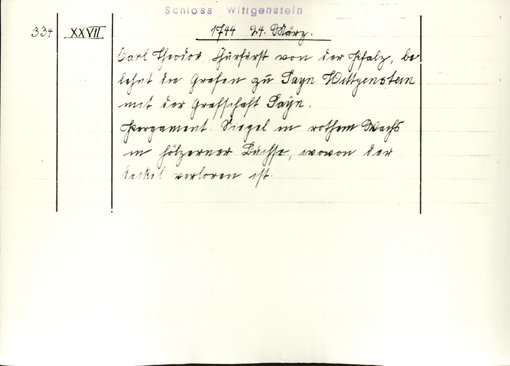 Schloss Wittgenstein
334 XXVII 1744 24. März.
Carl Theodor Churfürst von der Pfalz, be
lehnt die Grafen zu Sayn Wittgenstein
mit der Grafschaft Sayn.
Pergament. Siegel in rothem Wachs
in hölzerner Büchse, wovon der
Deckel verloren ist.